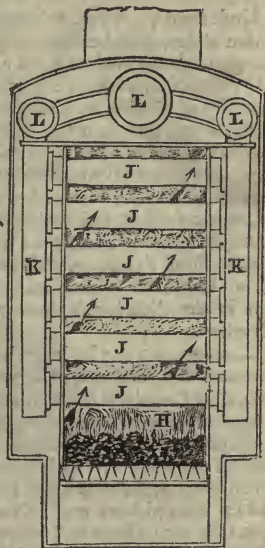 L
L L
J
J
J
K K
J
J
J
H